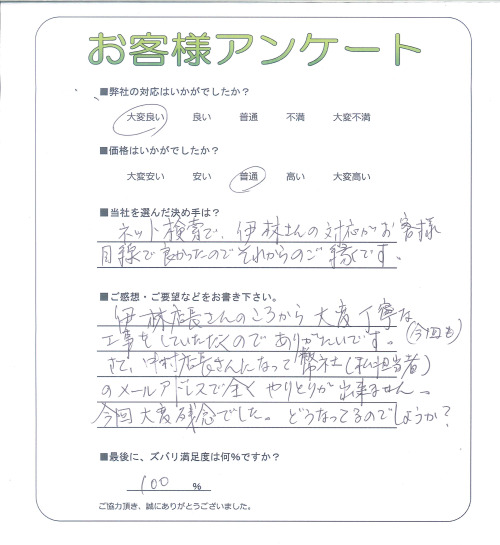 お客様アンケート
■弊社の対応はいかがでしたか？
大変良い 良い 普通 不満 大変不満
■価格はいかがでしたか？
大変安い 安い 普通 高い 大変高い
■当社を選んだ決め手は？
ネット検索で、伊林さんの対応がお客様
目線で良かったのでそれからのご縁です。
■ご感想・ご要望などをお書き下さい。
伊林店長さんのころから大変丁寧な
工事をしていただくのでありがたいです。(今回も)
さて、中村店長さんになって幣社(私担当者)
のメールアドレスで全くやりとりが出来ません。
今回大変残念でした。どうなってるのでしょうか？
■最後に、ズバリ満足度は何%ですか？
100 %
ご協力頂き、誠にありがとうございました。